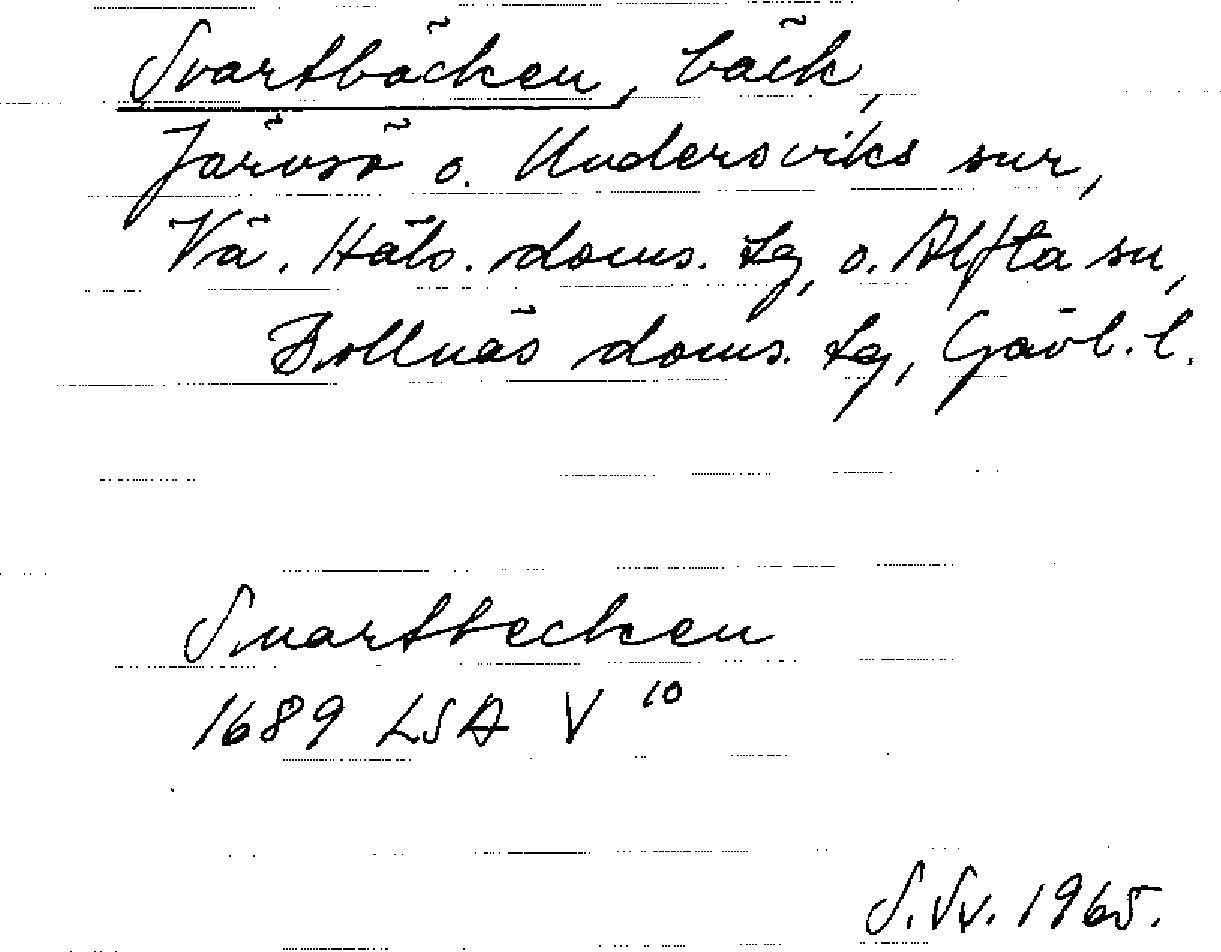 Svartbäcken, bäck,
Järvsö o. Undersviks snr,
Vä. Häls. doms. tg, o. Alfta sn,
Bollnäs doms. tg, Gävl. l.
Suartbecken
1689 LSA V 10
S. Sv. 1965.